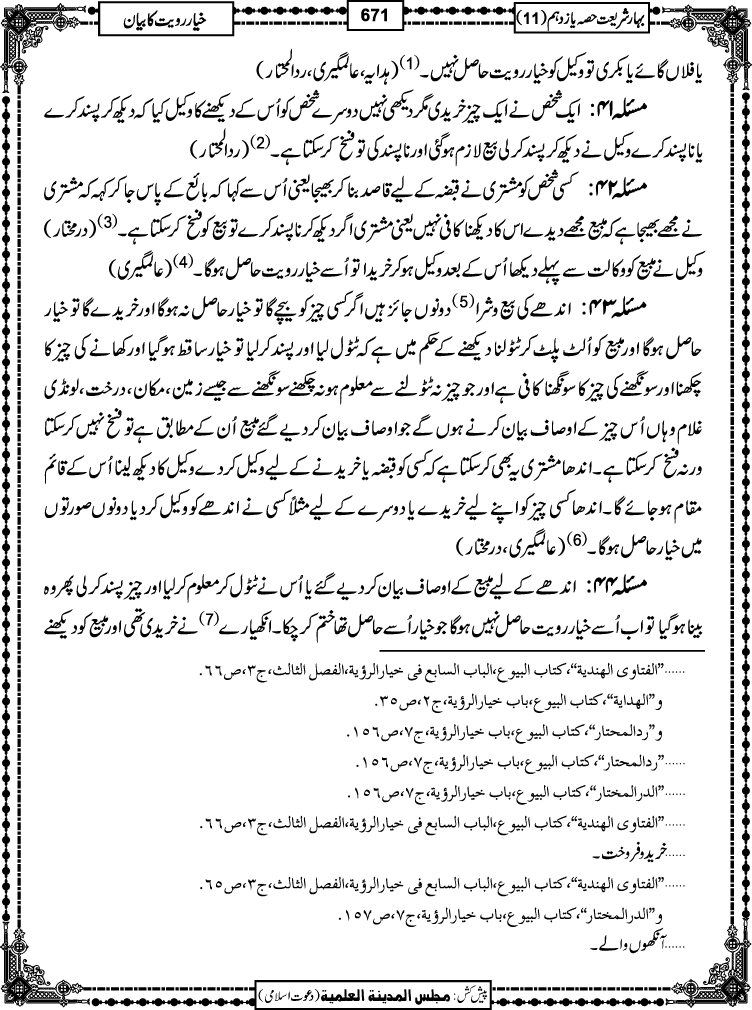 بہارِ شریعت حصہ یازدہم (11)
671
خیار رویت کا بیان
یا فلاں گائے یا بکری تو وکیل کو خیار رویت حاصل نہیں۔(1) (ہدایہ، عالمگیری، ردالمحتار)
مسئلہ ۴۱: ایک شخص نے ایک چیز خریدی مگر دیکھی نہیں دوسرے شخص کو اُس کے دیکھنے کا وکیل کیا کہ دیکھ کر پسند کرے
یا ناپسند کرے وکیل نے دیکھ کر پسند کر لی بیع لازم ہوگئی اور ناپسند کی تو فسخ کر سکتا ہے۔(2) (ردالمحتار)
مسئلہ ۴۲: کسی شخص کو مشتری نے قبضہ کے لیے قاصد بنا کر بھیجا یعنی اُس سے کہا کہ بائع کے پاس جا کر کہہ کہ مشتری
نے مجھے بھیجا ہے کہ مبیع مجھے دیدے اس کا دیکھنا کافی نہیں یعنی مشتری اگر دیکھ کر ناپسند کرے تو بیع کو فسخ کر سکتا ہے۔(3) (درمختار)
وکیل نے مبیع کو وکالت سے پہلے دیکھا اُس کے بعد وکیل ہو کر خریدا تو اُسے خیار رویت حاصل ہوگا۔(4) (عالمگیری)
مسئلہ ۴۳: اندھے کی بیع وشرا(5) دونوں جائز ہیں اگر کسی چیز کو بیچے گا تو خیار حاصل نہ ہوگا اور خریدے گا تو خیار
حاصل ہوگا اور مبیع کو اُلٹ پلٹ کر ٹٹولنا دیکھنے کے حکم میں ہے کہ ٹٹول لیا اور پسند کر لیا تو خیار ساقط ہوگیا اور کھانے کی چیز کا
چکھنا اور سونگھنے کی چیز کا سونگھنا کافی ہے اور جو چیز نہ ٹٹولنے سے معلوم ہو نہ چکھنے سونگھنے سے جیسے زمین، مکان، درخت، لونڈی
غلام وہاں اُس چیز کے اوصاف بیان کرنے ہوں گے جو اوصاف بیان کر دیے گئے مبیع اُن کے مطابق ہے تو فسخ نہیں کر سکتا
ورنہ فسخ کر سکتا ہے۔ اندھا مشتری یہ بھی کر سکتا ہے کہ کسی کو قبضہ یا خریدنے کے لیے وکیل کر دے وکیل کا دیکھ لینا اُس کے قائم
مقام ہو جائے گا۔ اندھا کسی چیز کو اپنے لیے خریدے یا دوسرے کے لیے مثلاً کسی نے اندھے کو وکیل کر دیا دونوں صورتوں
میں خیار حاصل ہوگا۔(6) (عالمگیری، درمختار)
مسئلہ ۴۴: اندھے کے لیے مبیع کے اوصاف بیان کر دیے گئے یا اُس نے ٹٹول کر معلوم کر لیا اور چیز پسند کر لی پھر وہ
بینا ہوگیا تو اب اُسے خیار رویت حاصل نہیں ہوگا جو خیار اُسے حاصل تھا ختم کر چکا۔ انکھیارے(7) نے خریدی تھی اور مبیع کو دیکھنے
......"الفتاوی الهندیة"، کتاب البیوع، الباب السابع فی خیار الرؤیة، الفصل الثالث، ج٣، ص٦٦.
و"الهدایة"، کتاب البیوع، باب خیار الرؤیة، ج٢، ص٣٥.
و"ردالمحتار"، کتاب البیوع، باب خیار الرؤیة، ج٧، ص١٥٦.
......"ردالمحتار"، کتاب البیوع، باب خیار الرؤیة، ج٧، ص١٥٦.
......"الدرالمختار"، کتاب البیوع، باب خیار الرؤیة، ج٧، ص١٥٦.
......"الفتاوی الهندیة"، کتاب البیوع، الباب السابع فی خیار الرؤیة، الفصل الثالث، ج٣، ص٦٦.
......خرید و فروخت۔
......"الفتاوی الهندیة"، کتاب البیوع، الباب السابع فی خیار الرؤیة، الفصل الثالث، ج٣، ص٦٥.
و"الدرالمختار"، کتاب البیوع، باب خیار الرؤیة، ج٧، ص١٥٧.
......آنکھوں والے۔
پیش کش: مجلس المدینة العلمیة (دعوت اسلامی)